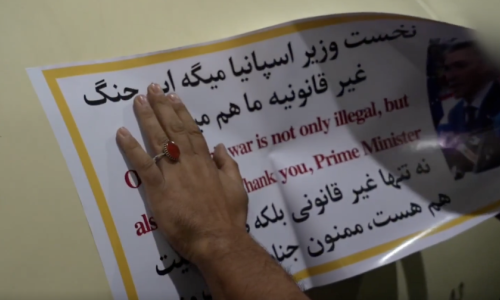 نخست وزیر اسپانیا میگه این جنگ
غیر قانونیه ما هم
war is not only illegal, but
thank you, Prime Minister
نه تنها غیر قانونی بلکه
هم هست، ممنون